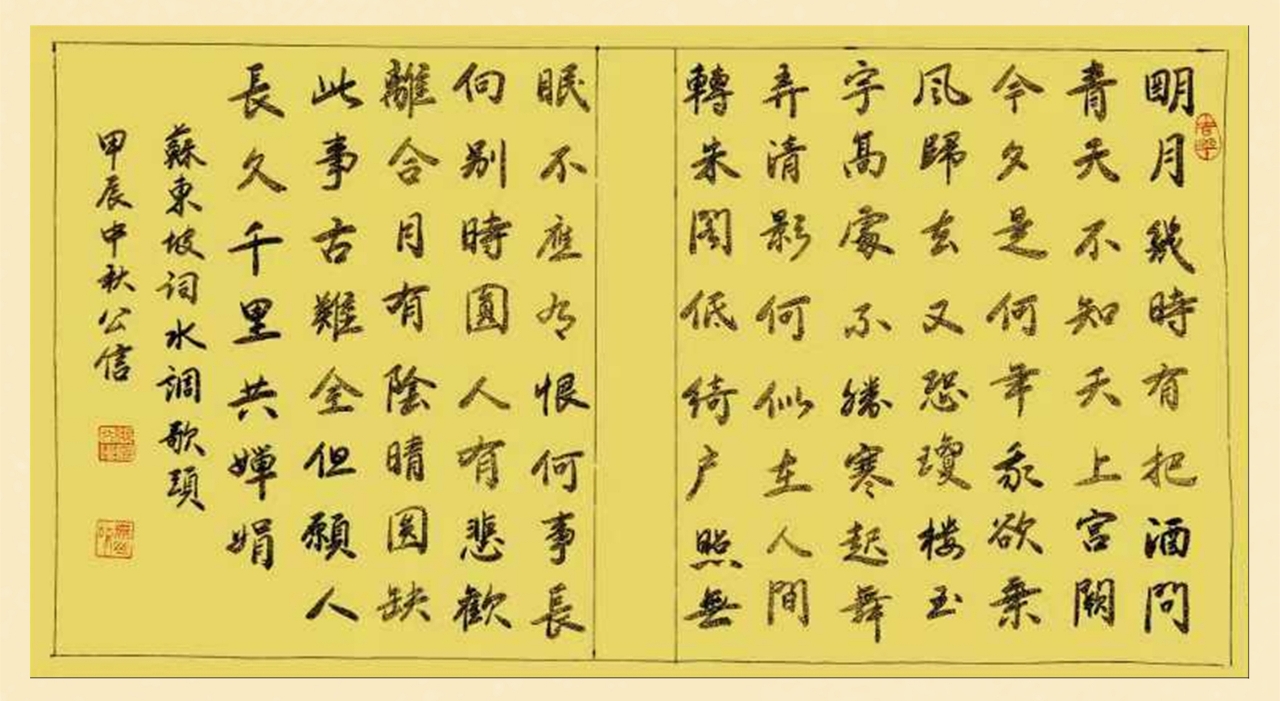 明月幾時有把酒問
青天不知天上宮闕
今夕是何年我欲乘
風歸去又恐瓊楼玉
宇高處不勝寒起舞
弄清影何似在人間
轉朱閣低綺户照無
眠不應有恨何事長
向别時圓人有悲歡
離合月有陰晴圓缺
此事古難全但願人
長久千里共嬋娟
蘇東坡词水調歌頭
甲辰中秋公信